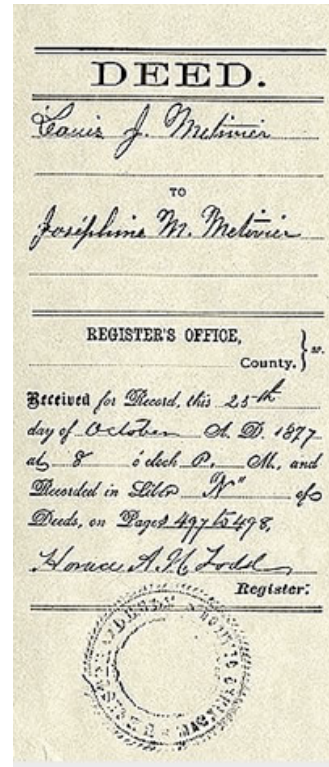 DEED.
Louis J. Metivier
TO
Josephine M. Metivier
REGISTER'S OFFICE,
County. } ss.
Received for Record, this 25th
day of October A. D. 1877
at 8 o'clock P. M., and
Recorded in Liber "N" of
Deeds, on Pages 497 to 498,
Horace A. N. Todd
Register.